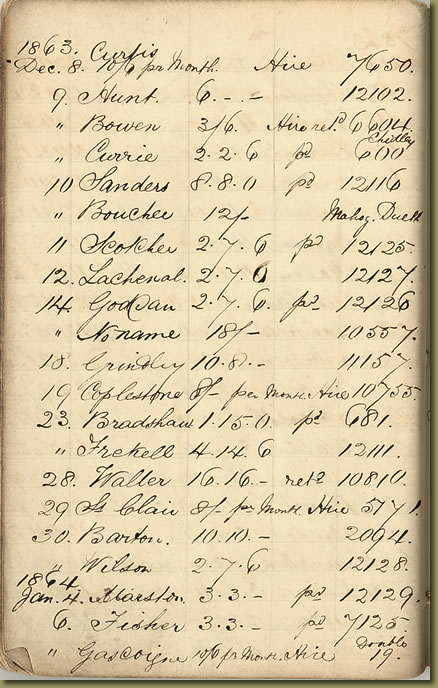 1863. Curtis
Dec. 8. 10/6 pr Month. Hire 7650.
9. Hunt. 6. - . - 12102.
" Bowen 3/6. Hire retd 6604.
" Currie 2. 2. 6 pd Chidley 600
10 Sanders 8. 8. 0 pd 12116
" Boucher 12/- Mahog. Duett
11 Scotcher 2. 7. 6 pd 12125.
12. Lachenal. 2. 7. 0 12127.
14. Goddau 2. 7. 6. pd. 12126
" Noname 18/- 10557.
18. Grindley 10. 8. - 11157.
19 Coplestone 8/- per Month. Hire 10755.
23. Bradshaw 1. 15. 0. pd 681.
" Frekell 4. 14. 6 12111.
28. Walter 16. 16. - retd 10810.
29 St Clair 8/- pr Month Hire 5771.
30. Barton. 10. 10. - 2094.
" Wilson 2. 7. 6 12128.
1864
Jan. 4. Marston. 3. 3. - pd 12129.
6. Fisher 3. 3. - pd 7125.
" Gascoigne 10/6 pr Month. Hire Double 19.